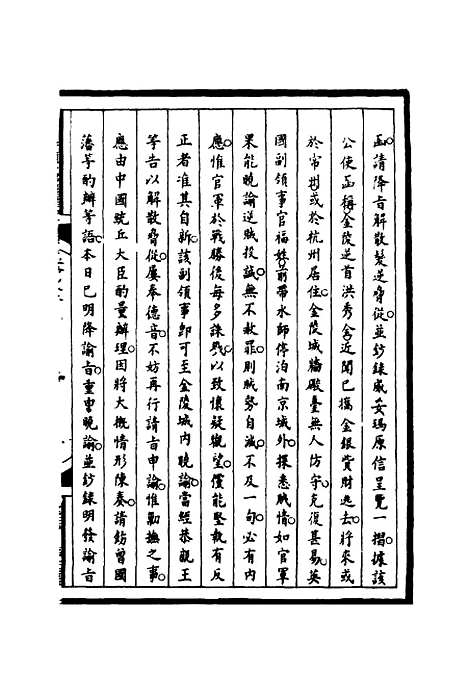 函請降旨解散髮逆脅從並鈔錄威妥瑪原信呈覽一摺據該
公使函稱金陵逆首洪秀全近聞已攜金銀貲財逃去將來或
於常州或於杭州居住金陵城牆礮臺無人防守克復甚易英
國副領事官福姓前帶水師停泊南京城外探悉賊情如官軍
果能曉諭逆賊投誠無不赦罪則賊勢自滅不及一旬必有內
應惟官軍於戰勝後每多誅戮以致懷疑觀望儻能堅執有反
正者准其自新該副領事即可至金陵城內曉諭當經恭親王
等告以解散脅從屢奉德音不妨再行請旨申諭惟勦撫之事
應由中國統兵大臣酌量辦理因將大概情形陳奏請飭曾國
藩等酌辦等語本日已明降諭旨重申曉諭並鈔錄明發諭旨